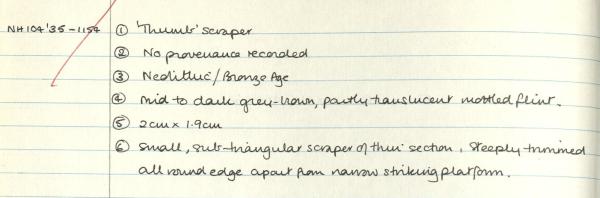 NH104'35-1154 ① 'Thumb' scraper
② No provenance recorded
③ Neolithic/Bronze Age
④ Mid to dark grey-brown, partly translucent mottled flint.
⑤ 2cm x 1.9cm
⑥ Small, sub-triangular scraper of thin section. Steeply trimmed
all round edge apart from narrow striking platform.